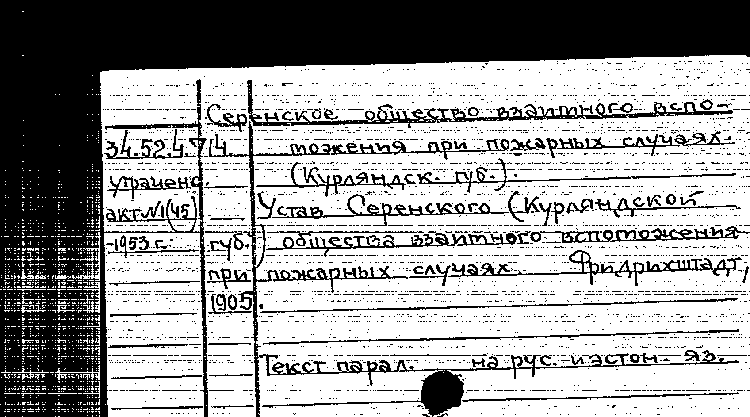 Серенское общество взаимного вспо-
34.52.4.714 можения при пожарных случаях.
утрачено. (Курляндск. губ.).
акт №1(45) Устав Серенского (Курляндской
-1953 г. губ.) общества взаимного вспоможения
при пожарных случаях. Фридрихштадт,
1905.
Текст парал. на рус. и эстон. яз.